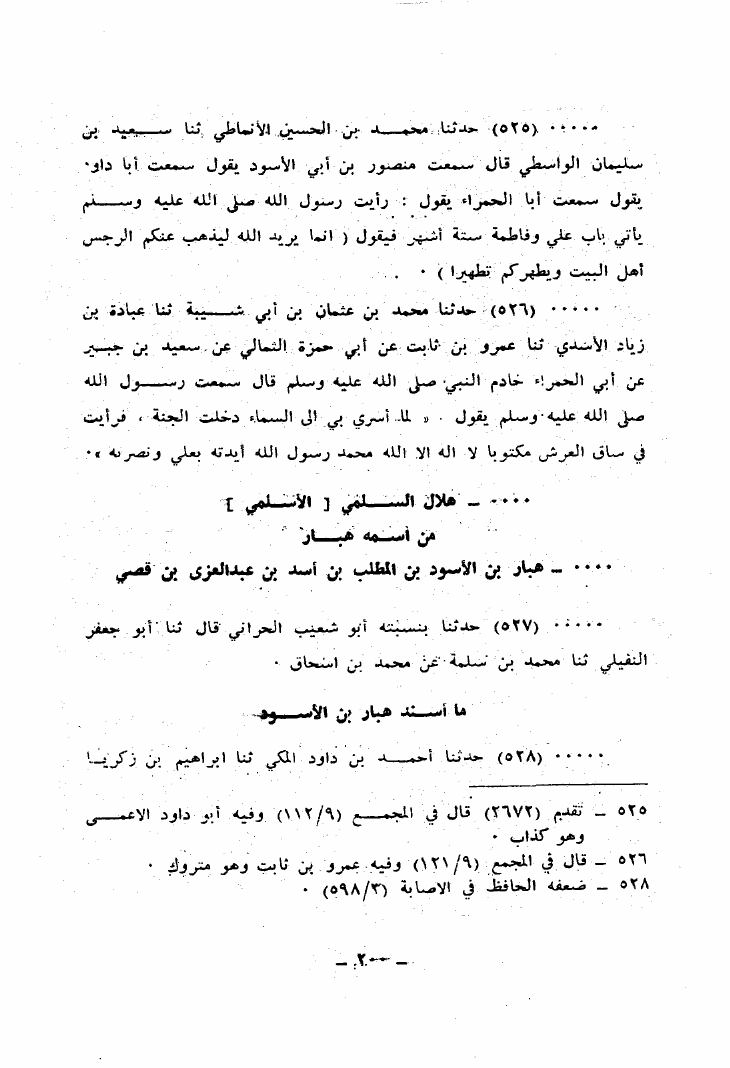 ..... (٥٢٥) حدثنا محمد بن الحسين الأنماطي ثنا سعيد بن
سليمان الواسطي قال سمعت منصور بن أبي الأسود يقول سمعت أبا داود
يقول سمعت أبا الحمراء يقول : رأيت رسول الله صلى الله عليه وسلم
يأتي باب علي وفاطمة ستة أشهر فيقول ( انما يريد الله ليذهب عنكم الرجس
أهل البيت ويطهركم تطهيرا ) .
..... (٥٢٦) حدثنا محمد بن عثمان بن أبي شيبة ثنا عبادة بن
زياد الأسدي ثنا عمرو بن ثابت عن أبي حمزة الثمالي عن سعيد بن جبير
عن أبي الحمراء خادم النبي صلى الله عليه وسلم قال سمعت رسول الله
صلى الله عليه وسلم يقول . « لما أسري بي الى السماء دخلت الجنة ، فرأيت
في ساق العرش مكتوبا لا اله الا الله محمد رسول الله أيدته بعلي ونصرته » .
.... ــ هلال السلمي [ الأسلمي ]
من اسمه هبار
.... ــ هبار بن الأسود بن المطلب بن أسد بن عبدالعزى بن قصي
..... (٥٢٧) حدثنا بنسبته أبو شعيب الحراني قال ثنا أبو جعفر
النفيلي ثنا محمد بن سلمة عن محمد بن اسحاق .
ما أسند هبار بن الأسود
..... (٥٢٨) حدثنا أحمد بن داود المكي ثنا ابراهيم بن زكريا
٥٢٥ ــ تقدم (٢٦٧٢) قال في المجمع (١١٢/٩) وفيه أبو داود الاعمى
وهو كذاب .
٥٢٦ ــ قال في المجمع (١٢١/٩) وفيه عمرو بن ثابت وهو متروك .
٥٢٨ ــ ضعفه الحافظ في الاصابة (٥٩٨/٣) .
ــ ٢٠٠ ــ